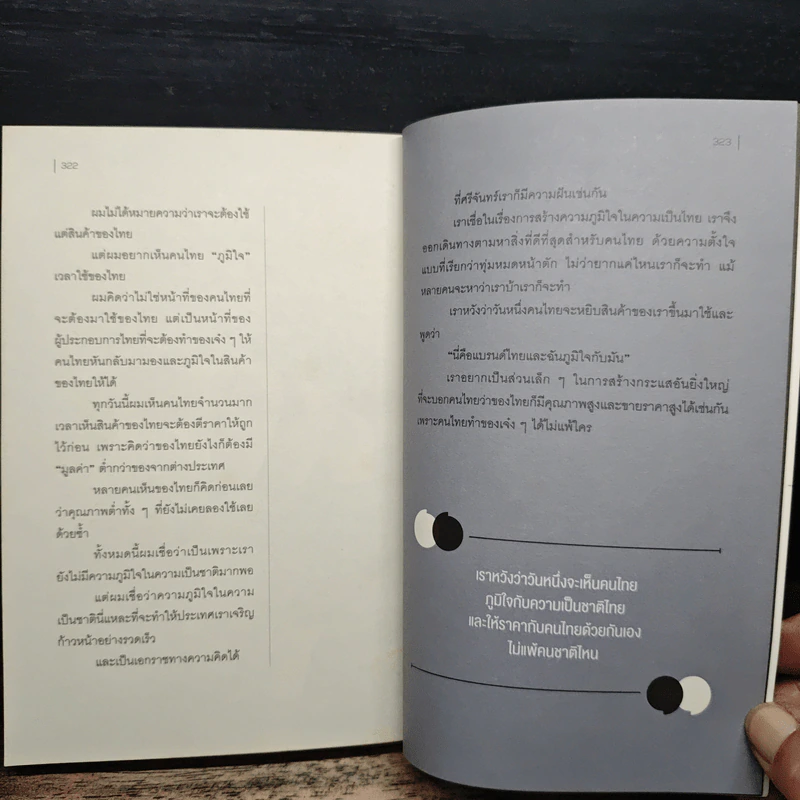 322
ผมไม่ได้หมายความว่าเราจะต้องใช้
แต่สินค้าของไทย
แต่ผมอยากเห็นคนไทย “ภูมิใจ”
เวลาใช้ของไทย
ผมคิดว่าไม่ใช่หน้าที่ของคนไทยที่
จะต้องมาใช้ของไทย แต่เป็นหน้าที่ของ
ผู้ประกอบการไทยที่จะต้องทำของเจ๋ง ๆ ให้
คนไทยหันกลับมามองและภูมิใจในสินค้า
ของไทยให้ได้
ทุกวันนี้ผมเห็นคนไทยจำนวนมาก
เวลาเห็นสินค้าของไทยจะต้องตีราคาให้ถูก
ไว้ก่อน เพราะคิดว่าของไทยยังไงก็ต้องมี
“มูลค่า” ต่ำกว่าของจากต่างประเทศ
หลายคนเห็นของไทยก็คิดก่อนเลย
ว่าคุณภาพต่ำทั้ง ๆ ที่ยังไม่เคยลองใช้เลย
ด้วยซ้ำ
ทั้งหมดนี้ผมเชื่อว่าเป็นเพราะเรา
ยังไม่มีความภูมิใจในความเป็นชาติมากพอ
แต่ผมเชื่อว่าความภูมิใจในความ
เป็นชาตินี่แหละที่จะทำให้ประเทศเราเจริญ
ก้าวหน้าอย่างรวดเร็ว
และเป็นเอกราชทางความคิดได้
323
ที่ศรีจันทร์เราก็มีความฝันเช่นกัน
เราเชื่อในเรื่องการสร้างความภูมิใจในความเป็นไทย เราจึง
ออกเดินทางตามหาสิ่งที่ดีที่สุดสำหรับคนไทย ด้วยความตั้งใจ
แบบที่เรียกว่าทุ่มหมดหน้าตัก ไม่ว่ายากแค่ไหนเราก็จะทำ แม้
หลายคนจะหาว่าเราบ้าเราก็จะทำ
เราหวังว่าวันหนึ่งคนไทยจะหยิบสินค้าของเราขึ้นมาใช้และ
พูดว่า
“นี่คือแบรนด์ไทยและฉันภูมิใจกับมัน”
เราอยากเป็นส่วนเล็ก ๆ ในการสร้างกระแสอันยิ่งใหญ่
ที่จะบอกคนไทยว่าของไทยก็มีคุณภาพสูงและขายราคาสูงได้เช่นกัน
เพราะคนไทยทำของเจ๋ง ๆ ได้ไม่แพ้ใคร
เราหวังว่าวันหนึ่งจะเห็นคนไทย
ภูมิใจกับความเป็นชาติไทย
และให้ราคากับคนไทยด้วยกันเอง
ไม่แพ้คนชาติไหน